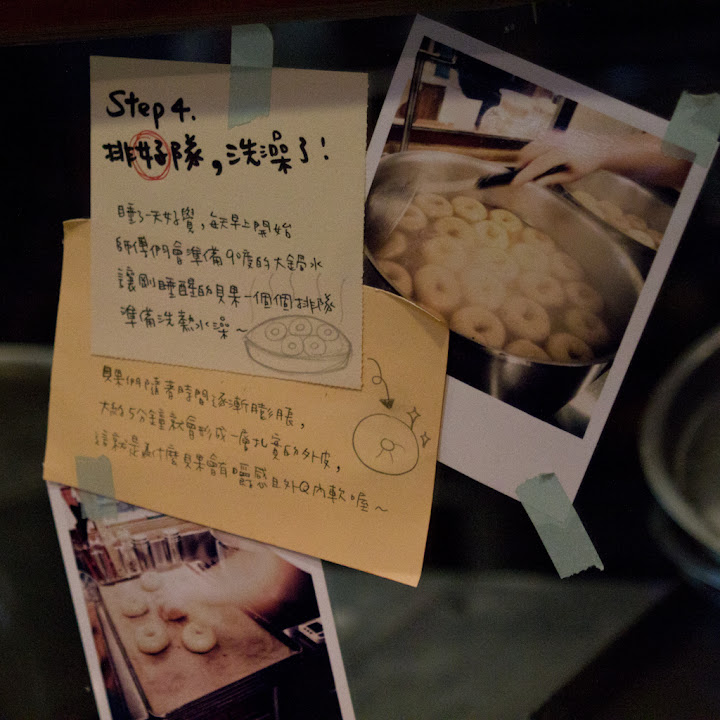 Step 4.
排好隊,洗澡了!
睡了一天好覺,每天早上開始
師傅們會準備90度的大鍋水
讓剛睡醒的貝果一個個排隊
準備洗熱水澡~
貝果們隨著時間逐漸膨脹,
大約5分鐘就會形成一層扎實的外皮,
這就是為什麼貝果會有嚼感且外Q內軟喔~